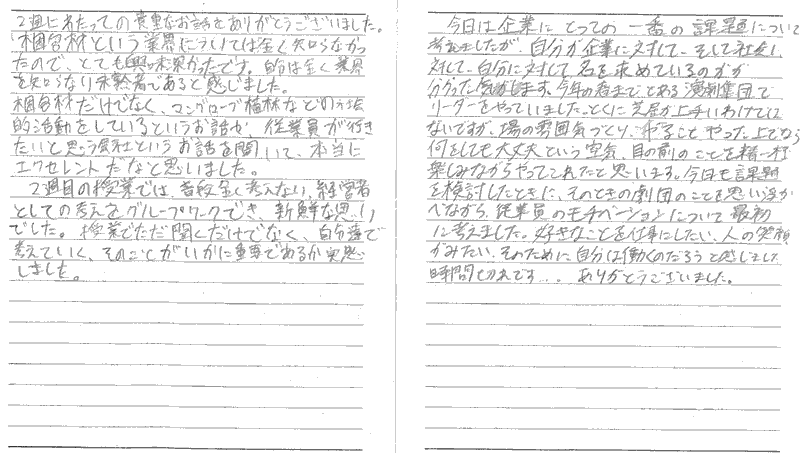 2週にわたっての貴重なお話をありがとうございました。
梱包材という業界については全く知らなかっ
たので、とても興味深かったです。自分は全く業界
を知らない未熟者であると感じました。
梱包材だけでなく、マングローブ植林などの
的活動をしているというお話や、従業員が行き
たいと思う会社というお話を聞いて、本当に
エクセレントだなと思いました。
2週目の授業では、普段全く考えない、経営者
としての考えをグループワークでき、新鮮な思い
でした。授業でただ聞くだけでなく、自分達で
考えていく、そのことがいかに重要であるか実感
しました。
今日は企業にとっての一番の課題について
考えましたが、自分が企業に対して、そして社会に
対して、自分に対して何を求めているのかが
分かった気がします。今年の春まで、とある演劇集団で
リーダーをやっていました。とくに芝居が上手いわけでは
ないですが、場の雰囲気づくり、やることやった上でなら
何をしても大丈夫という空気、目の前のことを精一杯
楽しみながらやってこれたと思います。今日も課題
を検討したときに、そのときの劇団のことを思い浮か
べながら、従業員のモチベーションについて最初
に考えました。好きなことを仕事にしたい、人の笑顔
がみたい、そのために自分は働くのだろうと感じました
時間切れです...ありがとうございました。